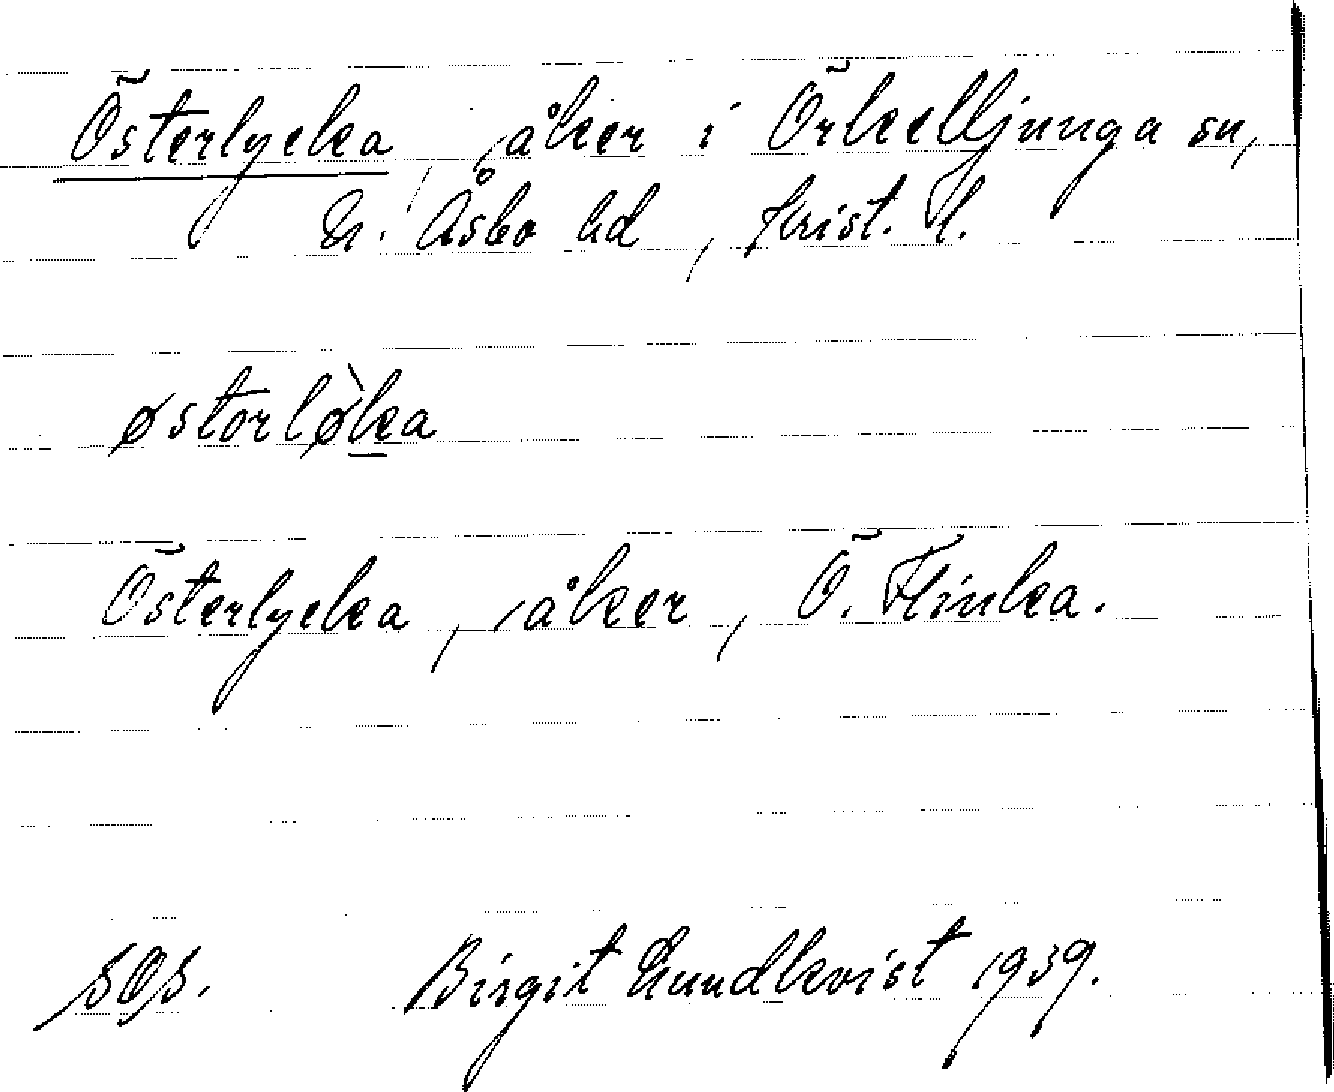 Österlycka, åker i Örkelljunga sn,
N. Åsbo hd, Krist. l.
østorlø̀ka
Österlycka, åker, Ö. Flinka.
SOS. Birgit Lundkvist 1939.